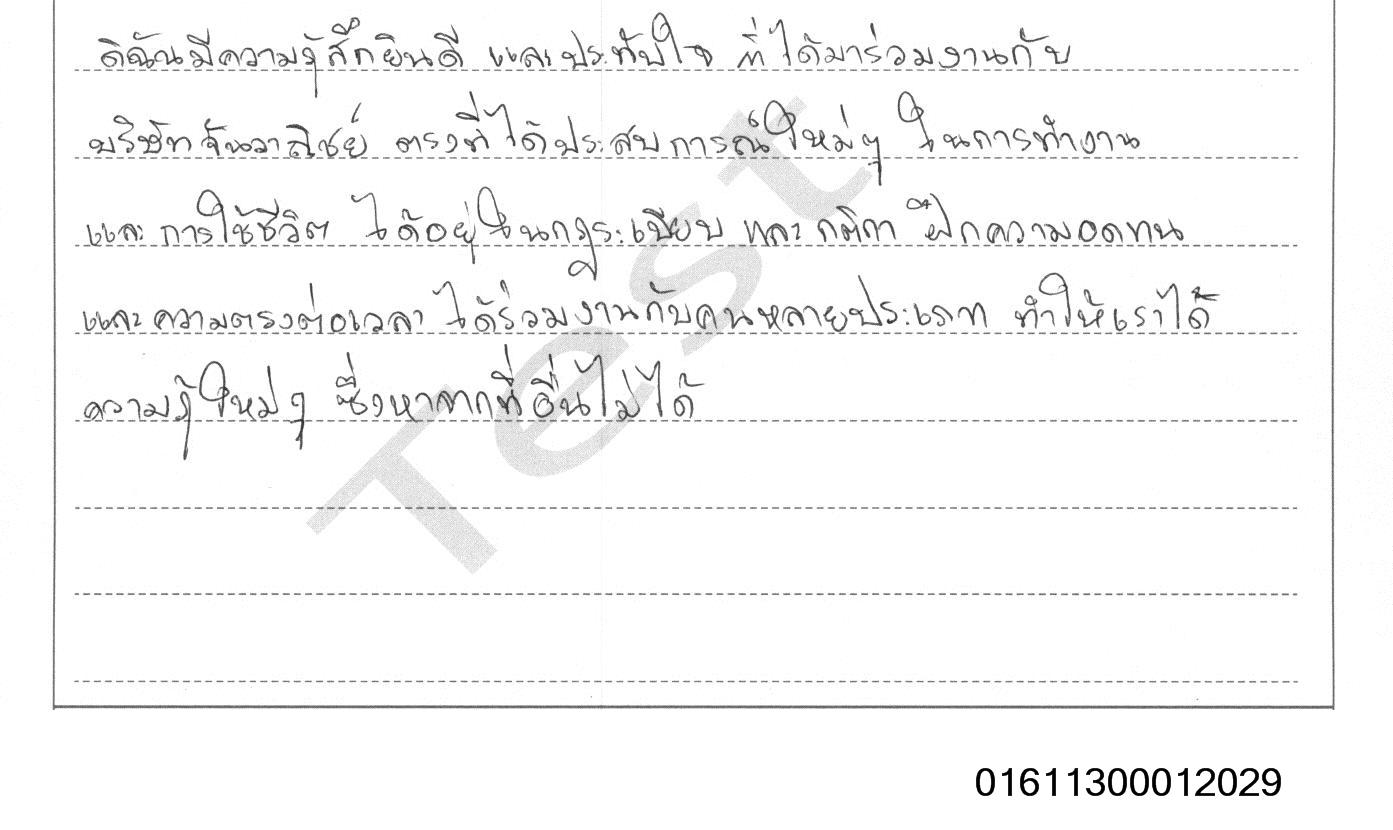 ดิฉันมีความรู้สึกยินดี และประทับใจ ที่ได้มาร่วมงานกับ
บริษัทจันวาณิชย์ ตรงที่ได้ประสบการณ์ใหม่ๆ ในการทำงาน
และการใช้ชีวิต ได้อยู่ในกฎระเบียบ และกติกา ฝึกความอดทน
และความตรงต่อเวลา ได้ร่วมงานกับคนหลายประเภท ทำให้เราได้
ความรู้ใหม่ๆ ซึ่งหาจากที่อื่นไม่ได้
Test
01611300012029